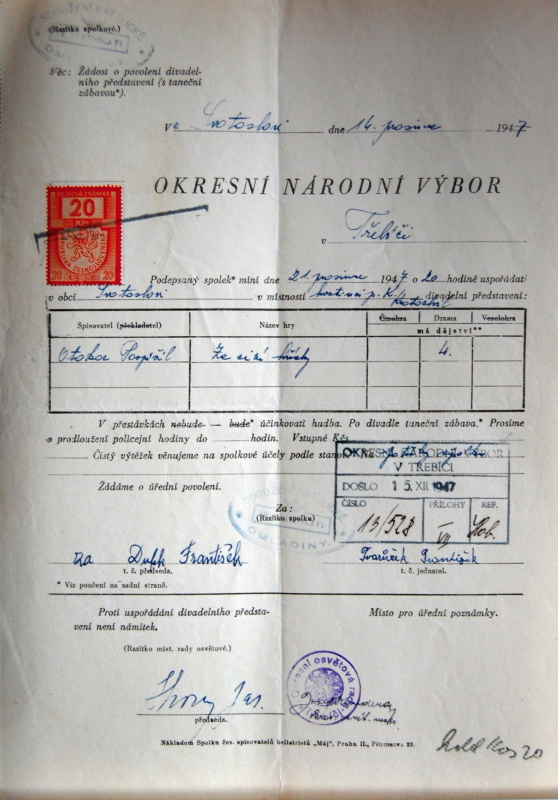 SDRUŽENÍ KATOLICKÉ
OMLADINY
(Razítko spolkové.)
Věc: Žádost o povolení divadel-
ního představení (s taneční
zábavou*).
Ve Svatoslavi dne 14. prosince 1947
OKRESNÍ NÁRODNÍ VÝBOR
KOLKOVÁ ZNÁMKA
20
Kčs
20 20
v Třebíči
Podepsaný spolek* míní dne 21. prosince 1947 o 20 hodině uspořádati
v obci Svatoslavi v místnosti hostinci p. K. divadelní představení:
Spisovatel (překladatel) Název hry Činohra Drama Veselohra
má dějství**
Otokar Pospíšil Za cizí hříchy 4.
V přestávkách nebude — bude* účinkovati hudba. Po divadle taneční zábava.* Prosíme
o prodloužení policejní hodiny do hodin. Vstupné Kčs
Čistý výtěžek věnujeme na spolkové účely podle stanov. Na
OKRESNÍ NÁRODNÍ VÝBOR
V TŘEBÍČI
DOŠLO 15. XII. 1947
ČÍSLO PŘÍLOHY REF.
13/528
Žádáme o úřední povolení.
Za:
(Razítko spolku)
SDRUŽENÍ
OMLADINY
za Dufek František
t. č. předseda. t. č. jednatel.
František
* Viz poučení na zadní straně.
Proti uspořádání divadelního předsta-
vení není námitek.
Místo pro úřední poznámky.
(Razítko míst. rady osvětové.)
Okresní osvětová rada
předseda.
Nákladem Spolku čes. spisovatelů belletristů „Máj", Praha II., Pštrossova 23.